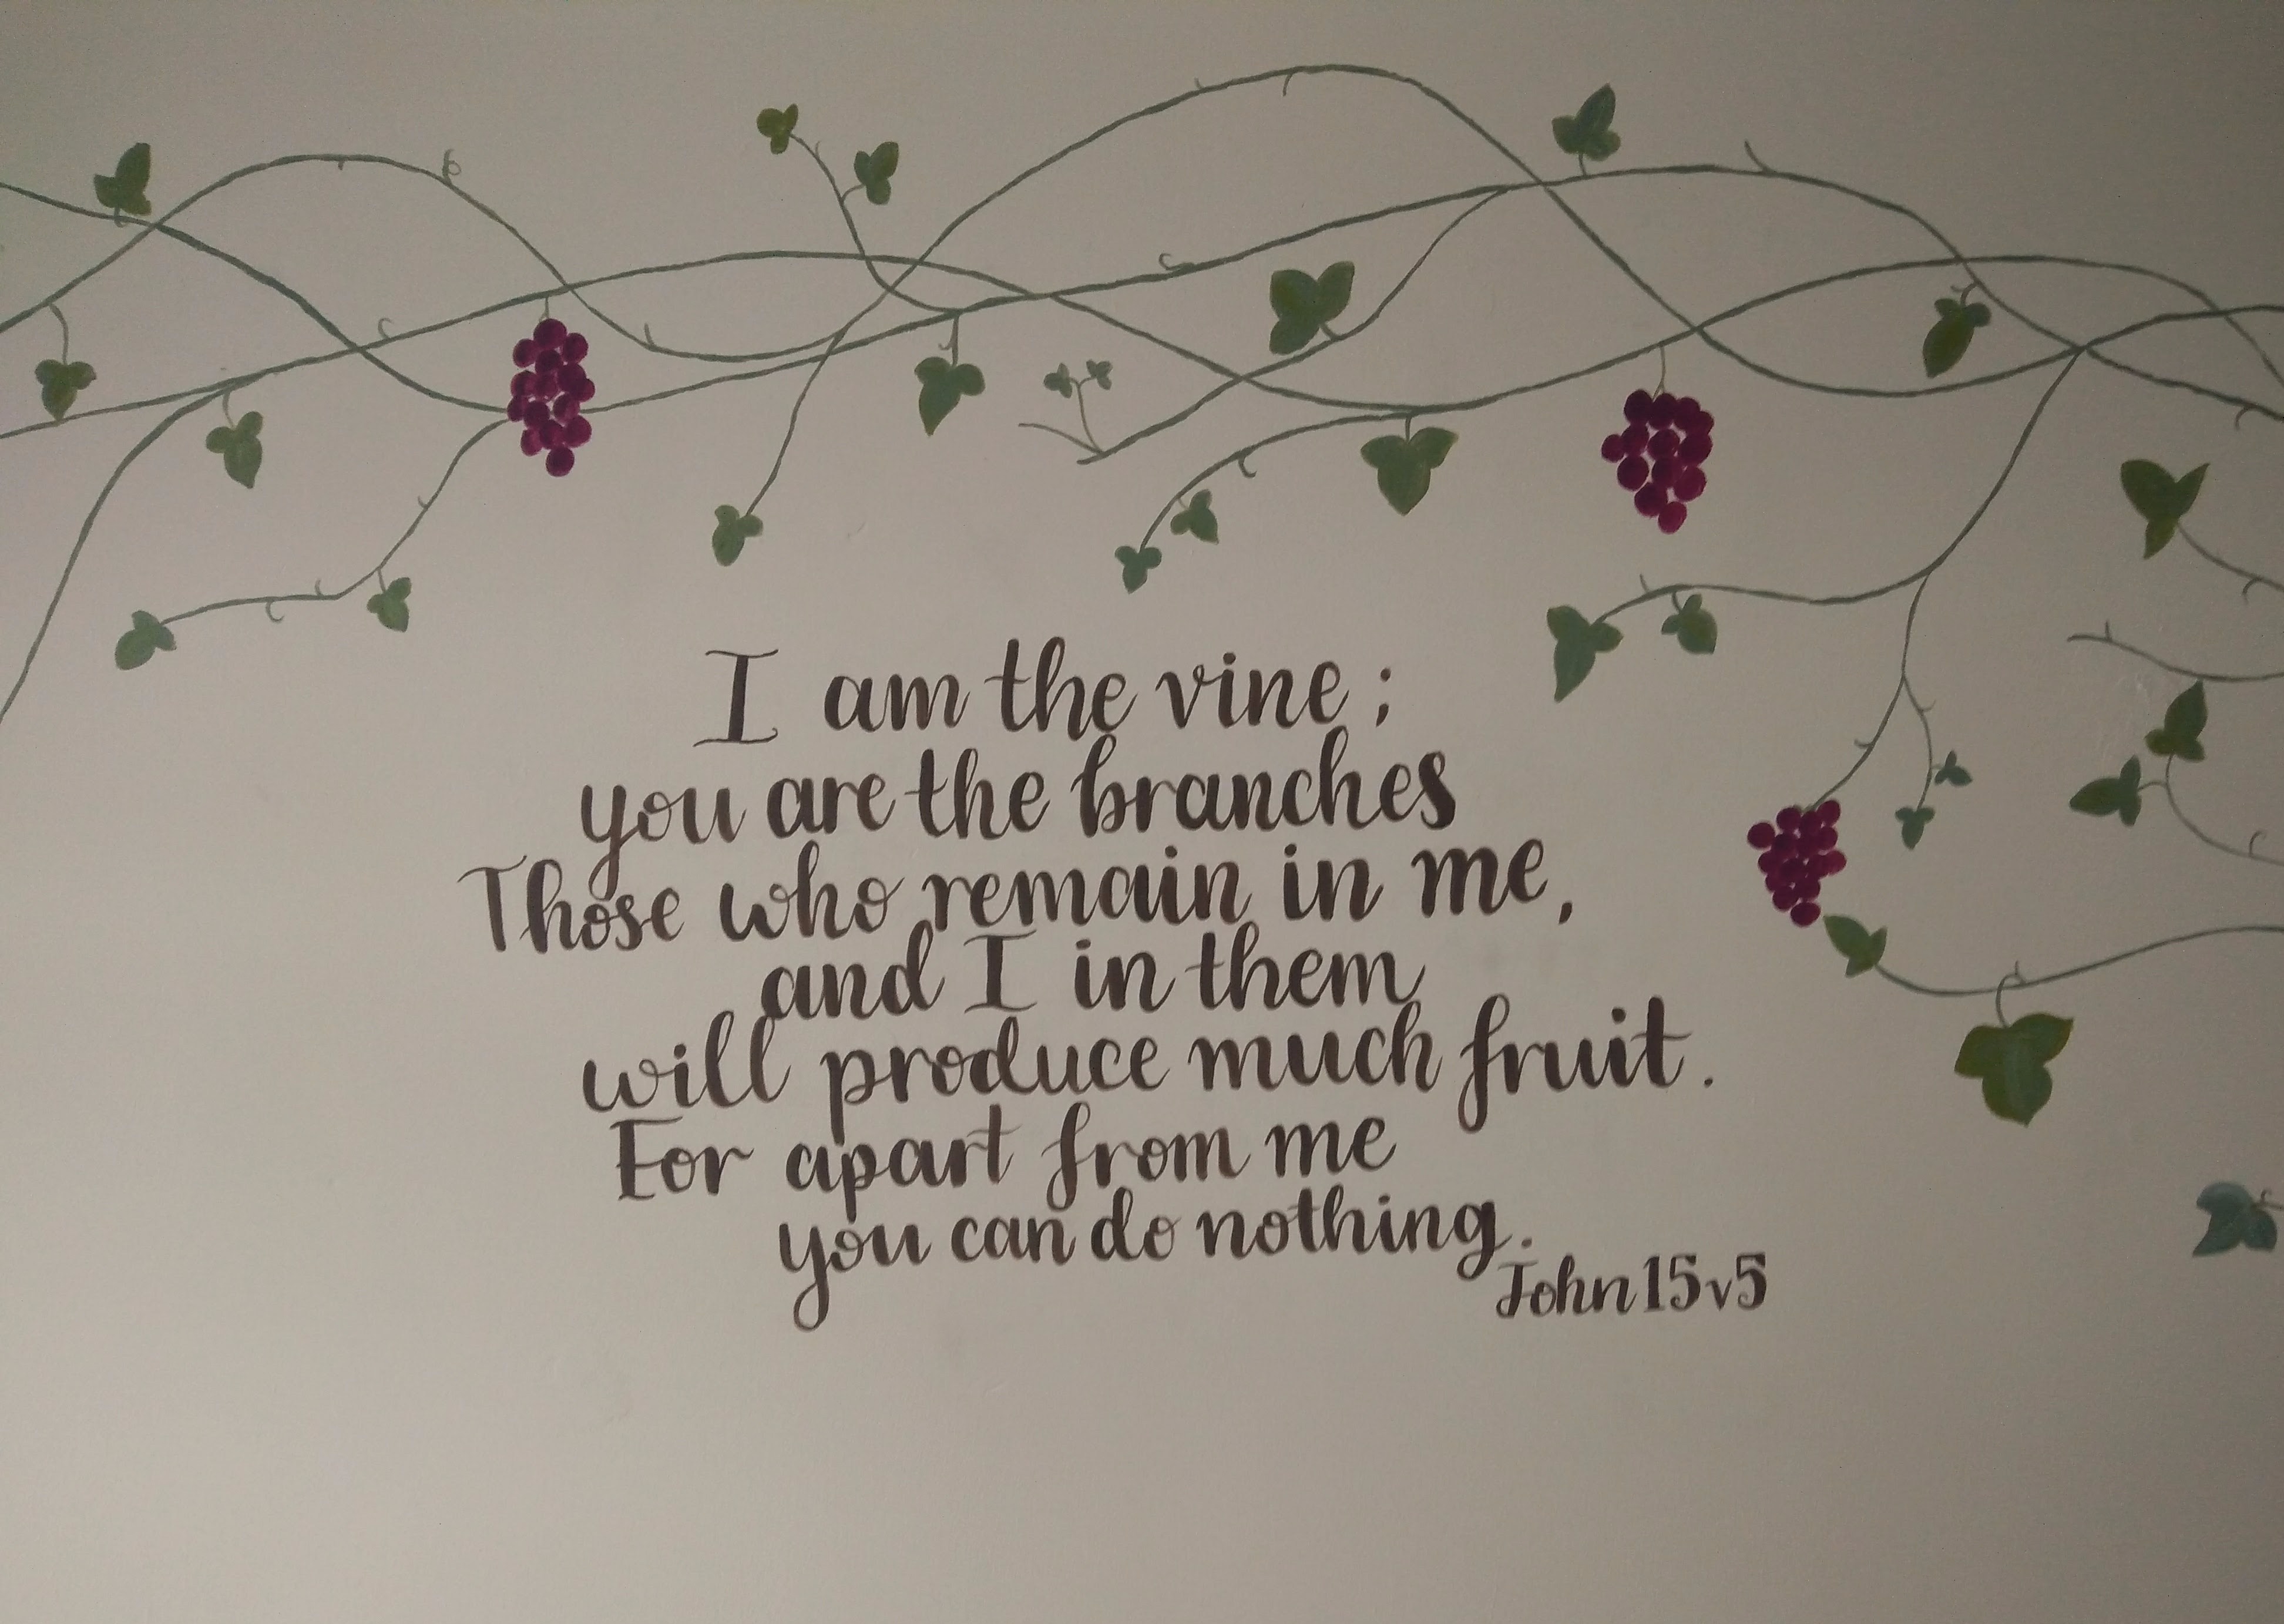 I am the vine;
you are the branches
Those who remain in me,
and I in them
will produce much fruit.
For apart from me
you can do nothing.
John 15v5